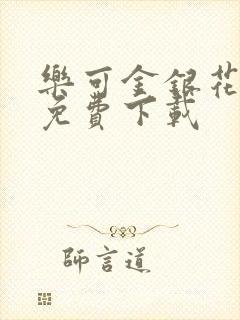 樂可金銀花
免費下載
師言道